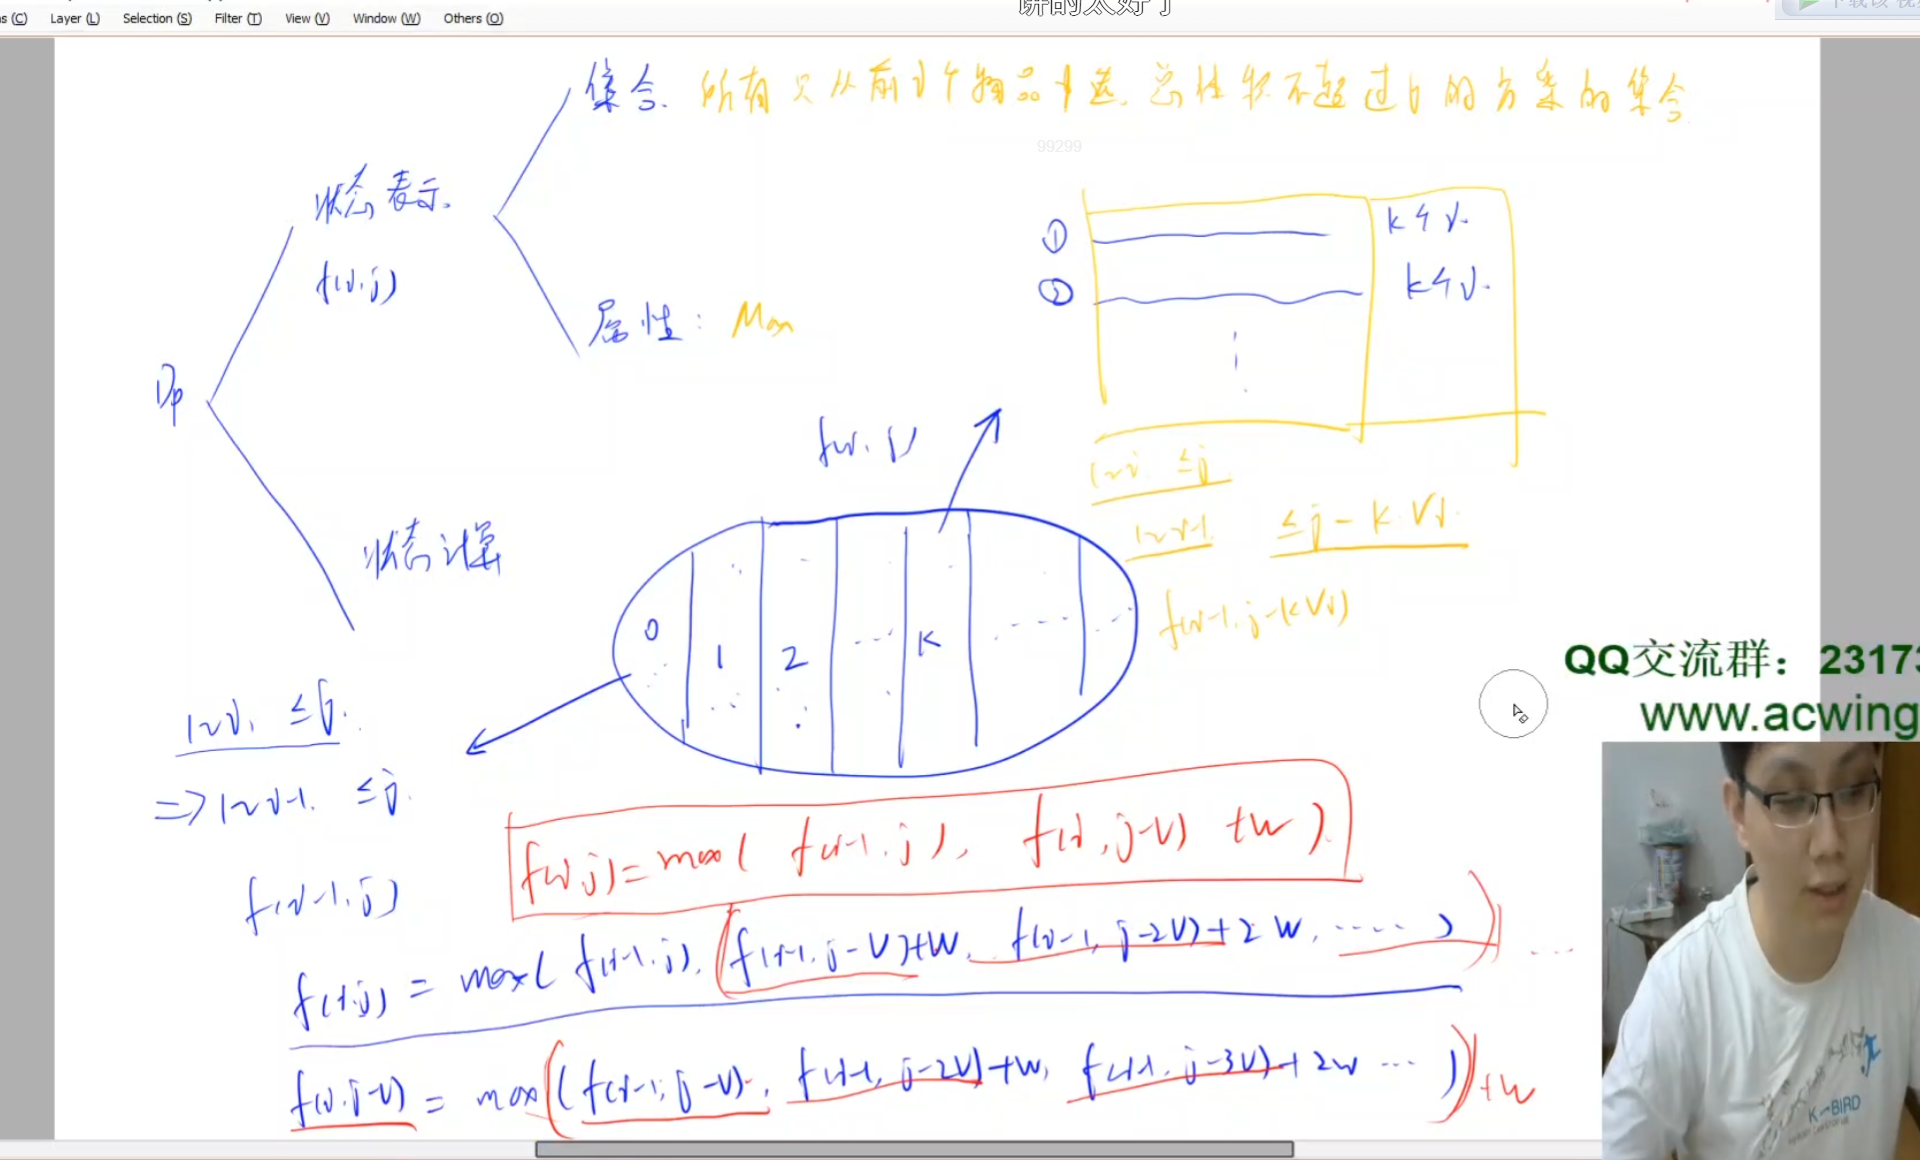 Layer (L) Selection (S) Filter (T) View (V) Window (W) Others (O)
饼的太好了
集合 所有只从前i个物品中选,总体积不超过j的方案的集合
99299
状态表示
f(i,j)
① k个i
② k个i
属性: Max
Dp
f(i,j)
1~i ≤j
1~i-1 ≤j-k·Vi
f(i-1,j-kVi)
状态计算
0 1 2 ... K ...
QQ交流群: 2317
www.acwing
1~i, ≤j
=> 1~i-1. ≤j
f(i-1,j)
f(i,j)=max( f(i-1,j), f(i,j-v) +w )
f(i,j) = max( f(i-1,j), f(i-1,j-v)+w, f(i-1,j-2v)+2w, ..... )
f(i,j-v) = max( f(i-1,j-v), f(i-1,j-2v)+w, f(i-1,j-3v)+2w ... ) +w
K-BIRD